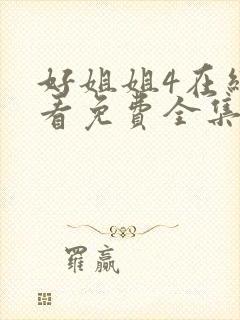 好姐姐4在
看免費全集
羅贏